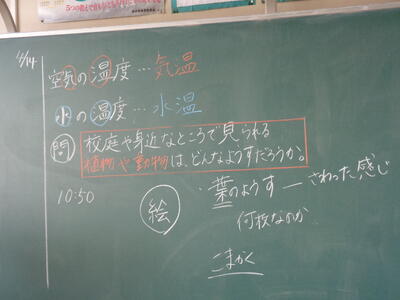 4/14
空気の温度…気温
水の温度…水温
問 校庭や身近なところで見られる
植物や動物は、どんなようすだろうか。
10:50
絵
・葉のようす ー さわった感じ
何枚なのか
こまかく